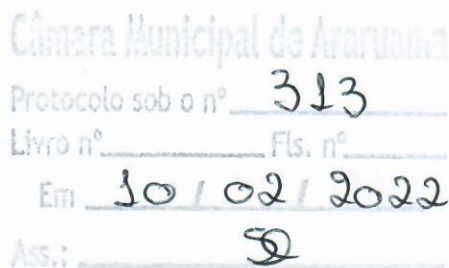 Câmara Municipal de Araruama
Protocolo sob o nº 313
Livro nº Fls. nº
Em 10 / 02 / 2022
Ass.: